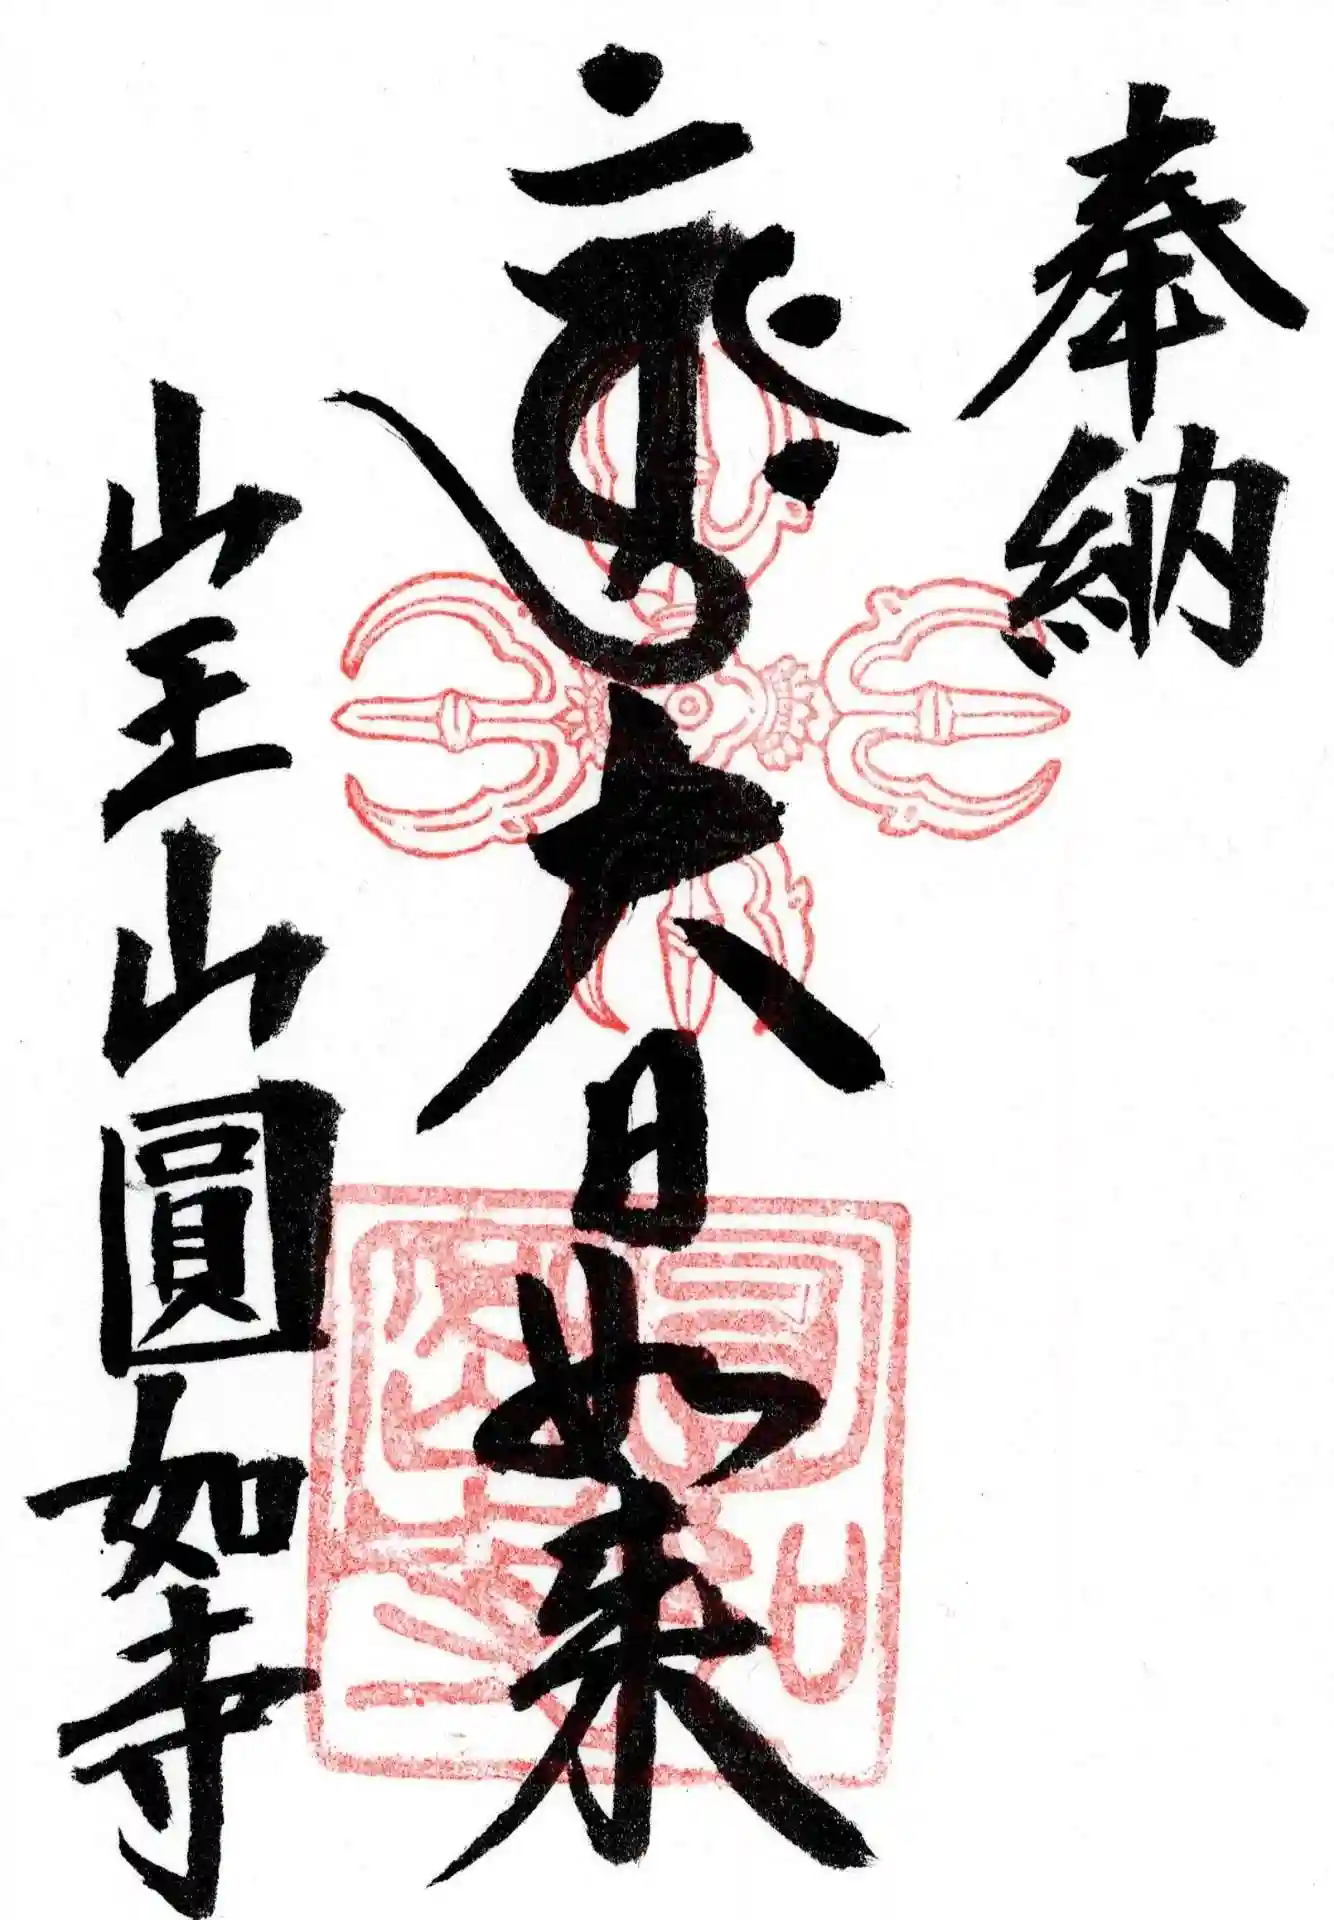 奉納
大日如来
山王山圓如寺